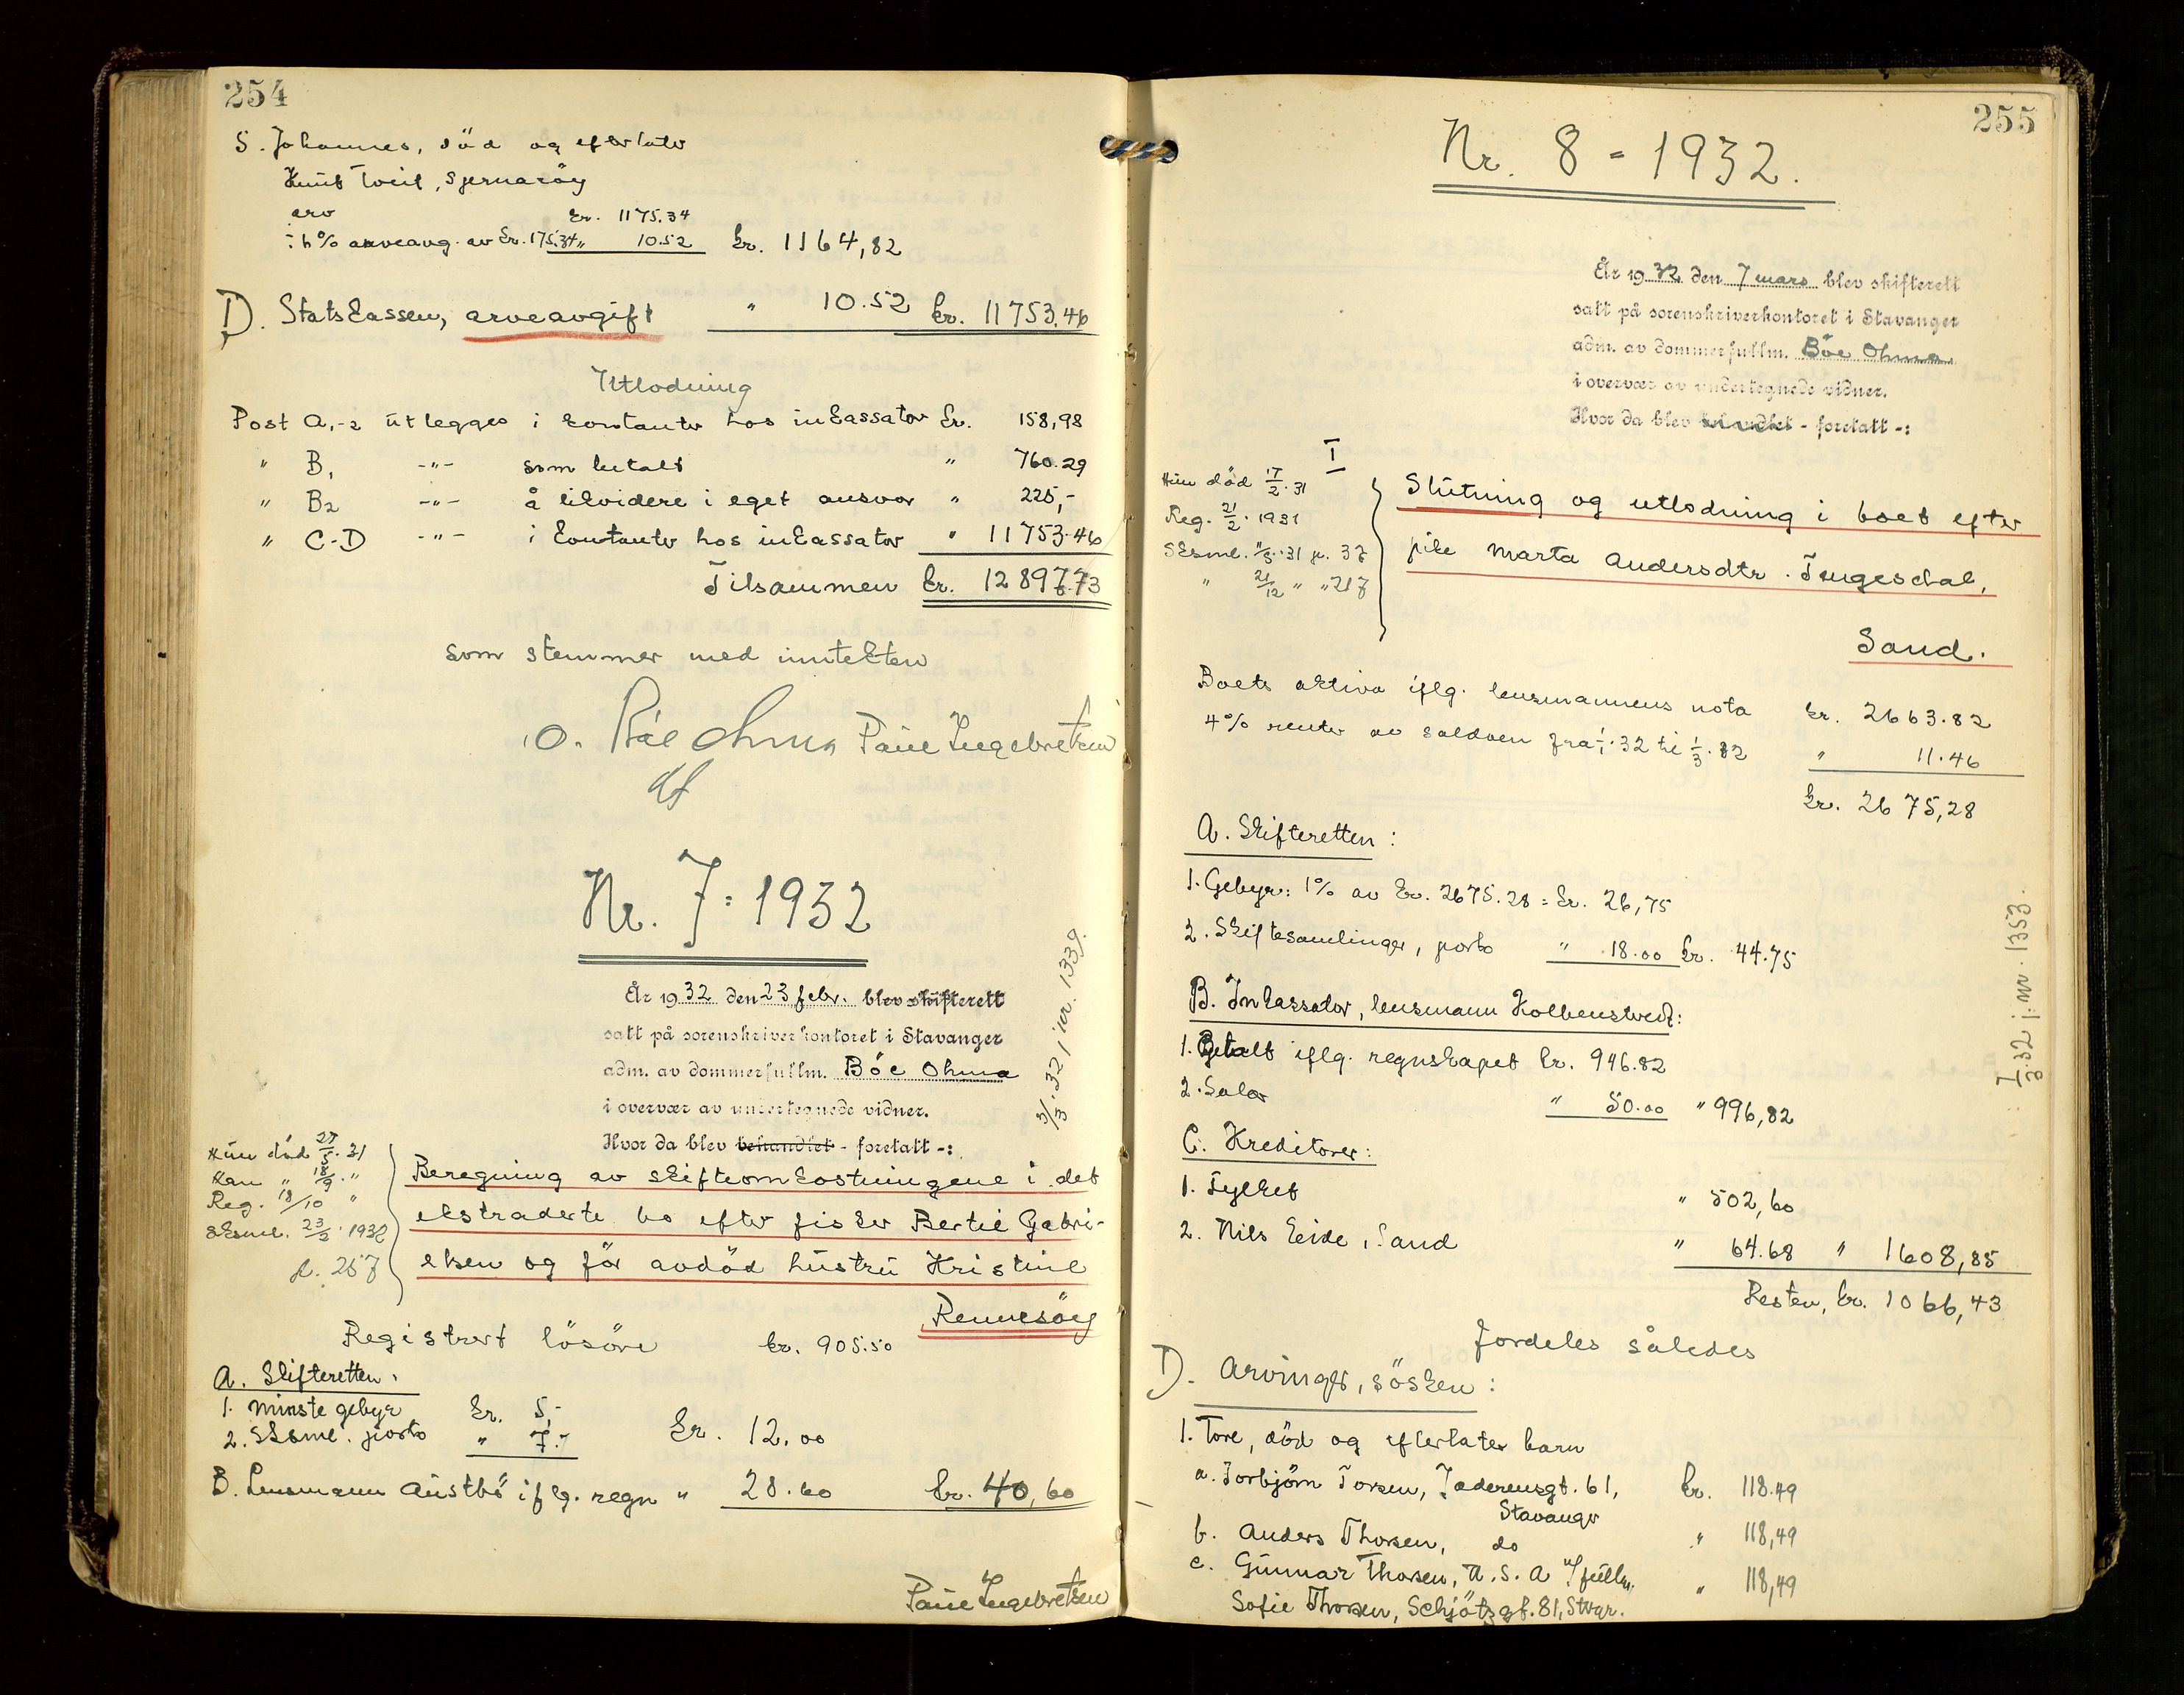 254
5. Johannes, död og efterlater
Knut Tveit, Sjernaröy
arv kr. 1175.34
÷ 6% arveavg. av kr. 175.34 " 10.52 kr. 1164,82
D. Statskassen, arveavgift " 10.52 kr. 11753.46
Utlodning
Post A,-2 utlegges i kontanter hos inkassator kr. 158,98
" B, -"- som betalt " 760.29
" B2 -"- å likvidere i eget ansvar " 225,-
" C-D -"- i kontanter hos inkassator " 11753.46
Tilsammen kr. 12897.73
som stemmer med inntekten
O. Bóe Ohma Paul Ingebretsen
df
Nr. 7 = 1932
År 1932 den 23 febr. blev skifterett
satt på sorenskriverkontoret i Stavanger
adm. av dommerfullm. Böe Ohma
i overvær av undertegnede vidner.
Hvor da blev behandlet - foretatt -:
3/3.32 j nr. 1339.
Hun död 27/5.31
Han " 18/9. "
Reg. 18/10 "
Sksml. 23/2. 1932
p. 257
Beregning av skifteomkostningene i det
ekstraderte bo efter fisker Bertil Gabri-
elsen og för avdöd hustru Kristine
Rennesöy
Registrert lösöre kr. 905.50
A. Skifteretten.
1. Minste gebyr kr. 5,-
2. Sksml. porto " 7.- kr. 12.00
B. Lensmann Austbö iflg. regn " 28.60 kr. 40,60
Paul Ingebretsen
255
Nr. 8 = 1932.
År 1932 den 7 mars blev skifterett
satt på sorenskriverkontoret i Stavanger
adm. av dommerfullm. Böe Ohma
i overvær av undertegnede vidner.
Hvor da blev behandlet - foretatt -:
I
Hun död 17/2.31
Reg. 21/2. 1931
Sksml. 11/5.31 p. 37
" 21/12 " " 217
Slutning og utlodning i boet efter
pike Marta Andersdtr. Tengesdal,
Sand.
Boets aktiva iflg. lensmannens nota kr. 2663.82
4% renter av saldoen fra 1/1.32 til 1/3.32 " 11.46
kr. 2675,28
A. Skifteretten:
1. Gebyr: 1% av kr. 2675.28 = kr. 26,75
2. Skiftesamlinger, porto " 18.00 kr. 44.75
B. Inkassator, lensmann Kolbenstvedt:
1. Betalt iflg. regnskapet kr. 946.82
2. Salær " 50.00 " 996,82
C. Kreditorer:
1. Fylket " 502,60
2. Nils Eide, Sand " 64.68 " 1608,85
Resten, kr. 1066,43
fordeles således
7/3.32 j. nr. 1353.
D. Arvinger, sösken:
1. Tore, död og efterlater barn
a. Torbjörn Torsen, Jæderensgt. 61, kr. 118.49
Stavanger
b. Anders Thorsen, do " 118,49
c. Gunnar Thorsen, U.S.A v/fullm. " 118,49
Sofie Thorsen, Schjötzgt. 81, Stvgr.